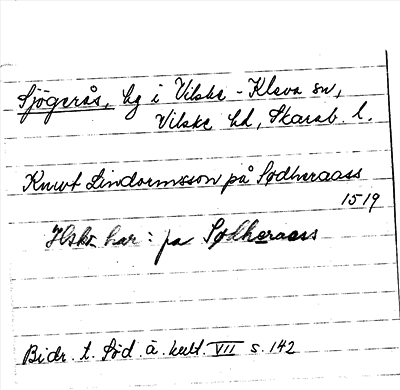 Sjögerås, hg i Vilske-Kleva sn,
Vilske hd, Skarab. l.
Knwt Lindormsson på Sødheraass
1519
Hskr. har: pa Sølheraass
Bidr. t. Söd. ä. kult. VII s. 142